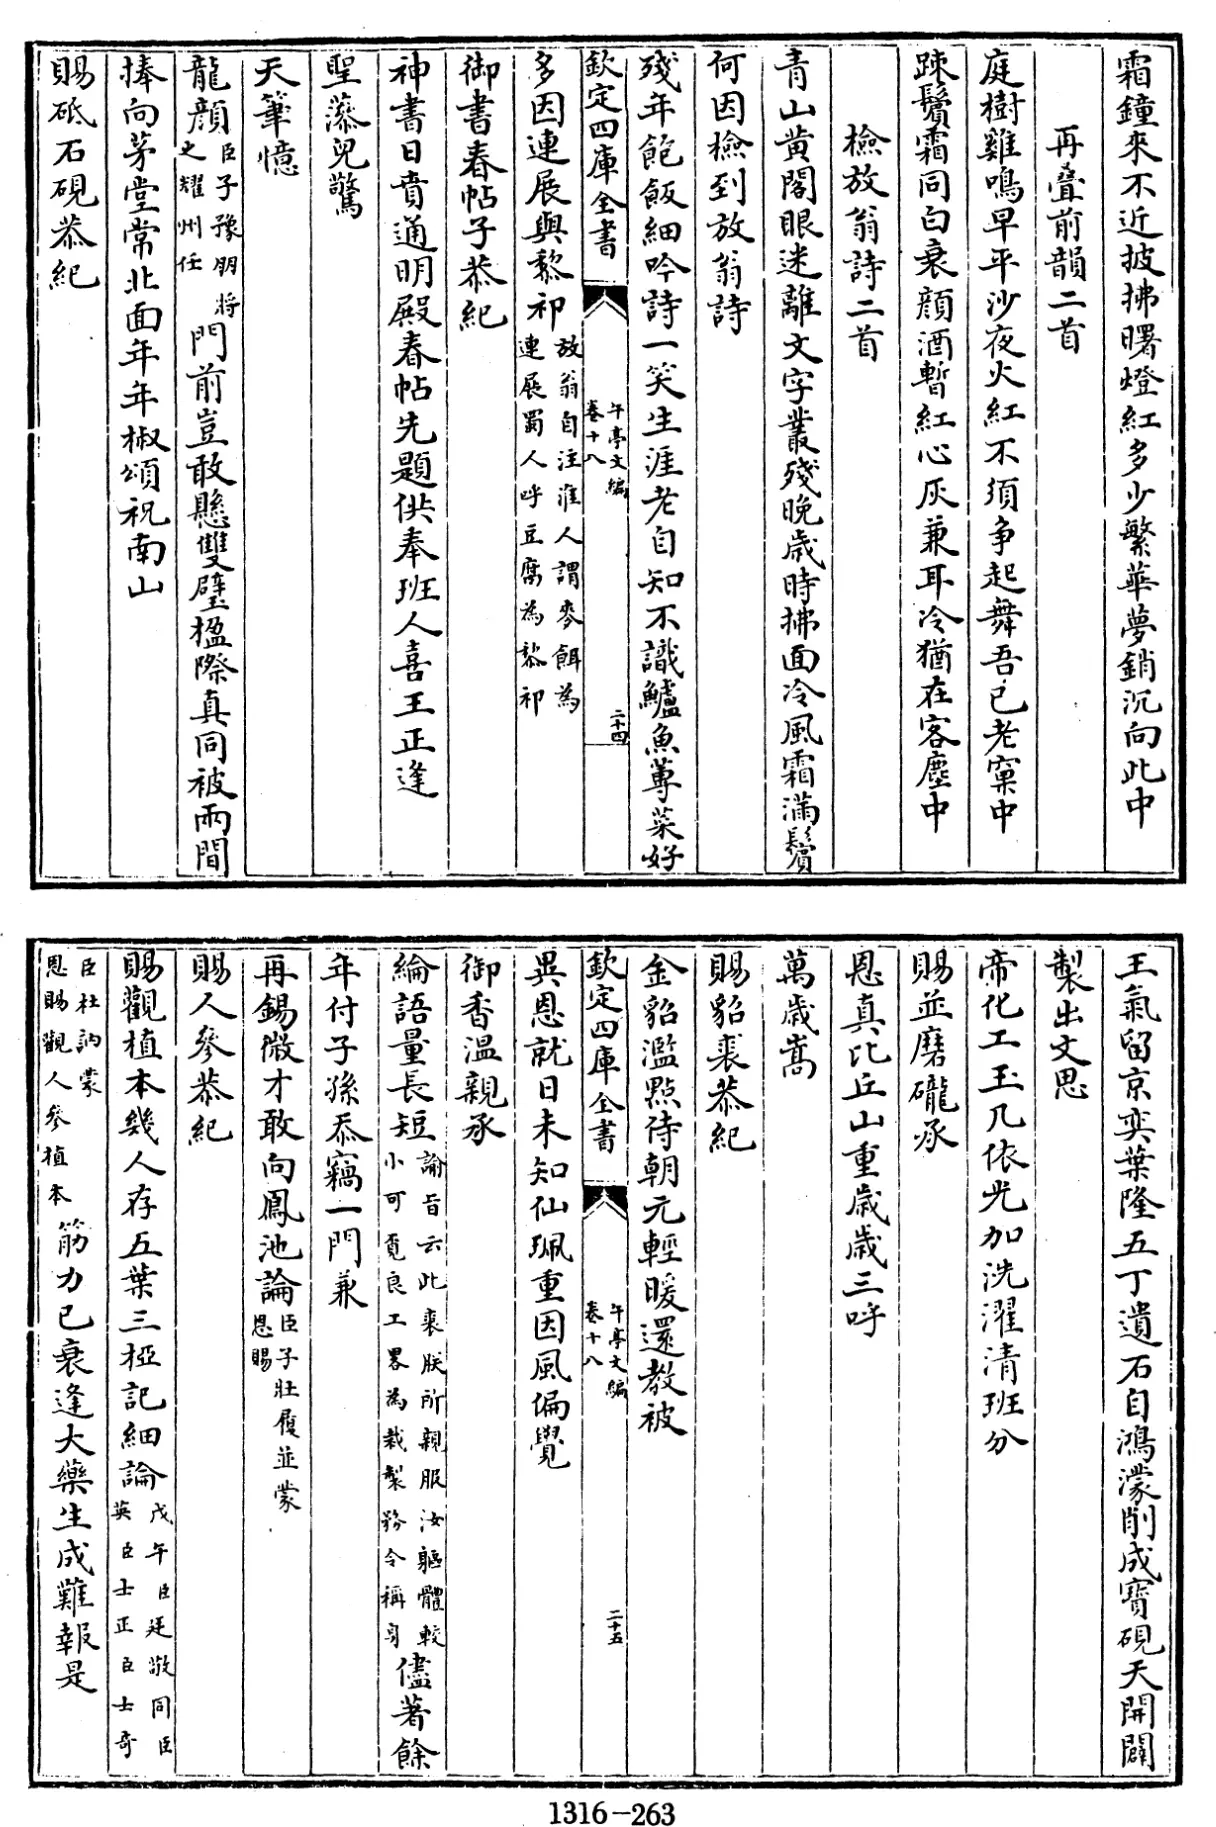 霜鐘來不近披拂曙燈紅多少繁華夢銷沉向此中
再疊前韻二首
庭樹雞鳴早平沙夜火紅不須争起舞吾已老窠中
踈鬢霜同白衰顔酒暫紅心灰兼耳冷猶在客塵中
檢放翁詩二首
青山黄閣眼迷離文字叢殘晚歲時拂面冷風霜滿鬢
何因檢到放翁詩
殘年飽飯細吟詩一笑生涯老自知不識鱸魚蓴菜好
欽定四庫全書
午亭文編
卷十八
二十四
多因連展與黎祁放翁自注淮人謂麥餌為
連展蜀人呼豆腐為黎祁
御書春帖子恭紀
神書日賁通明殿春帖先題供奉班人喜王正逢
聖藻兒驚
天筆憶
龍顔臣子豫朋將
之耀州任門前豈敢懸雙璧楹際真同被兩間
捧向茅堂常北面年年椒頌祝南山
賜砥石硯恭紀
王氣留京奕葉隆五丁遺石自鴻濛削成寶硯天開闢
製出文思
帝化工玉几依光加洗濯清班分
賜並磨礲承
恩真比丘山重歲歲三呼
萬歲嵩
賜貂裘恭紀
金貂濫點侍朝元輕暖還教被
欽定四庫全書
午亭文編
卷十八
二十五
異恩就日未知仙珮重因風偏覺
御香温親承
綸語量長短諭旨云此裘朕所親服汝軀體較
小可覔良工畧為裁製務令稱身儘著餘
年付子孫忝竊一門兼
再錫微才敢向鳳池論臣子壯履並蒙
恩賜
賜人參恭紀
賜觀植本幾人存五葉三椏記細論戊午臣廷敬同臣
英臣士正臣士奇
臣杜訥蒙
恩賜觀人參植本筋力已衰逢大藥生成難報是
1316-263